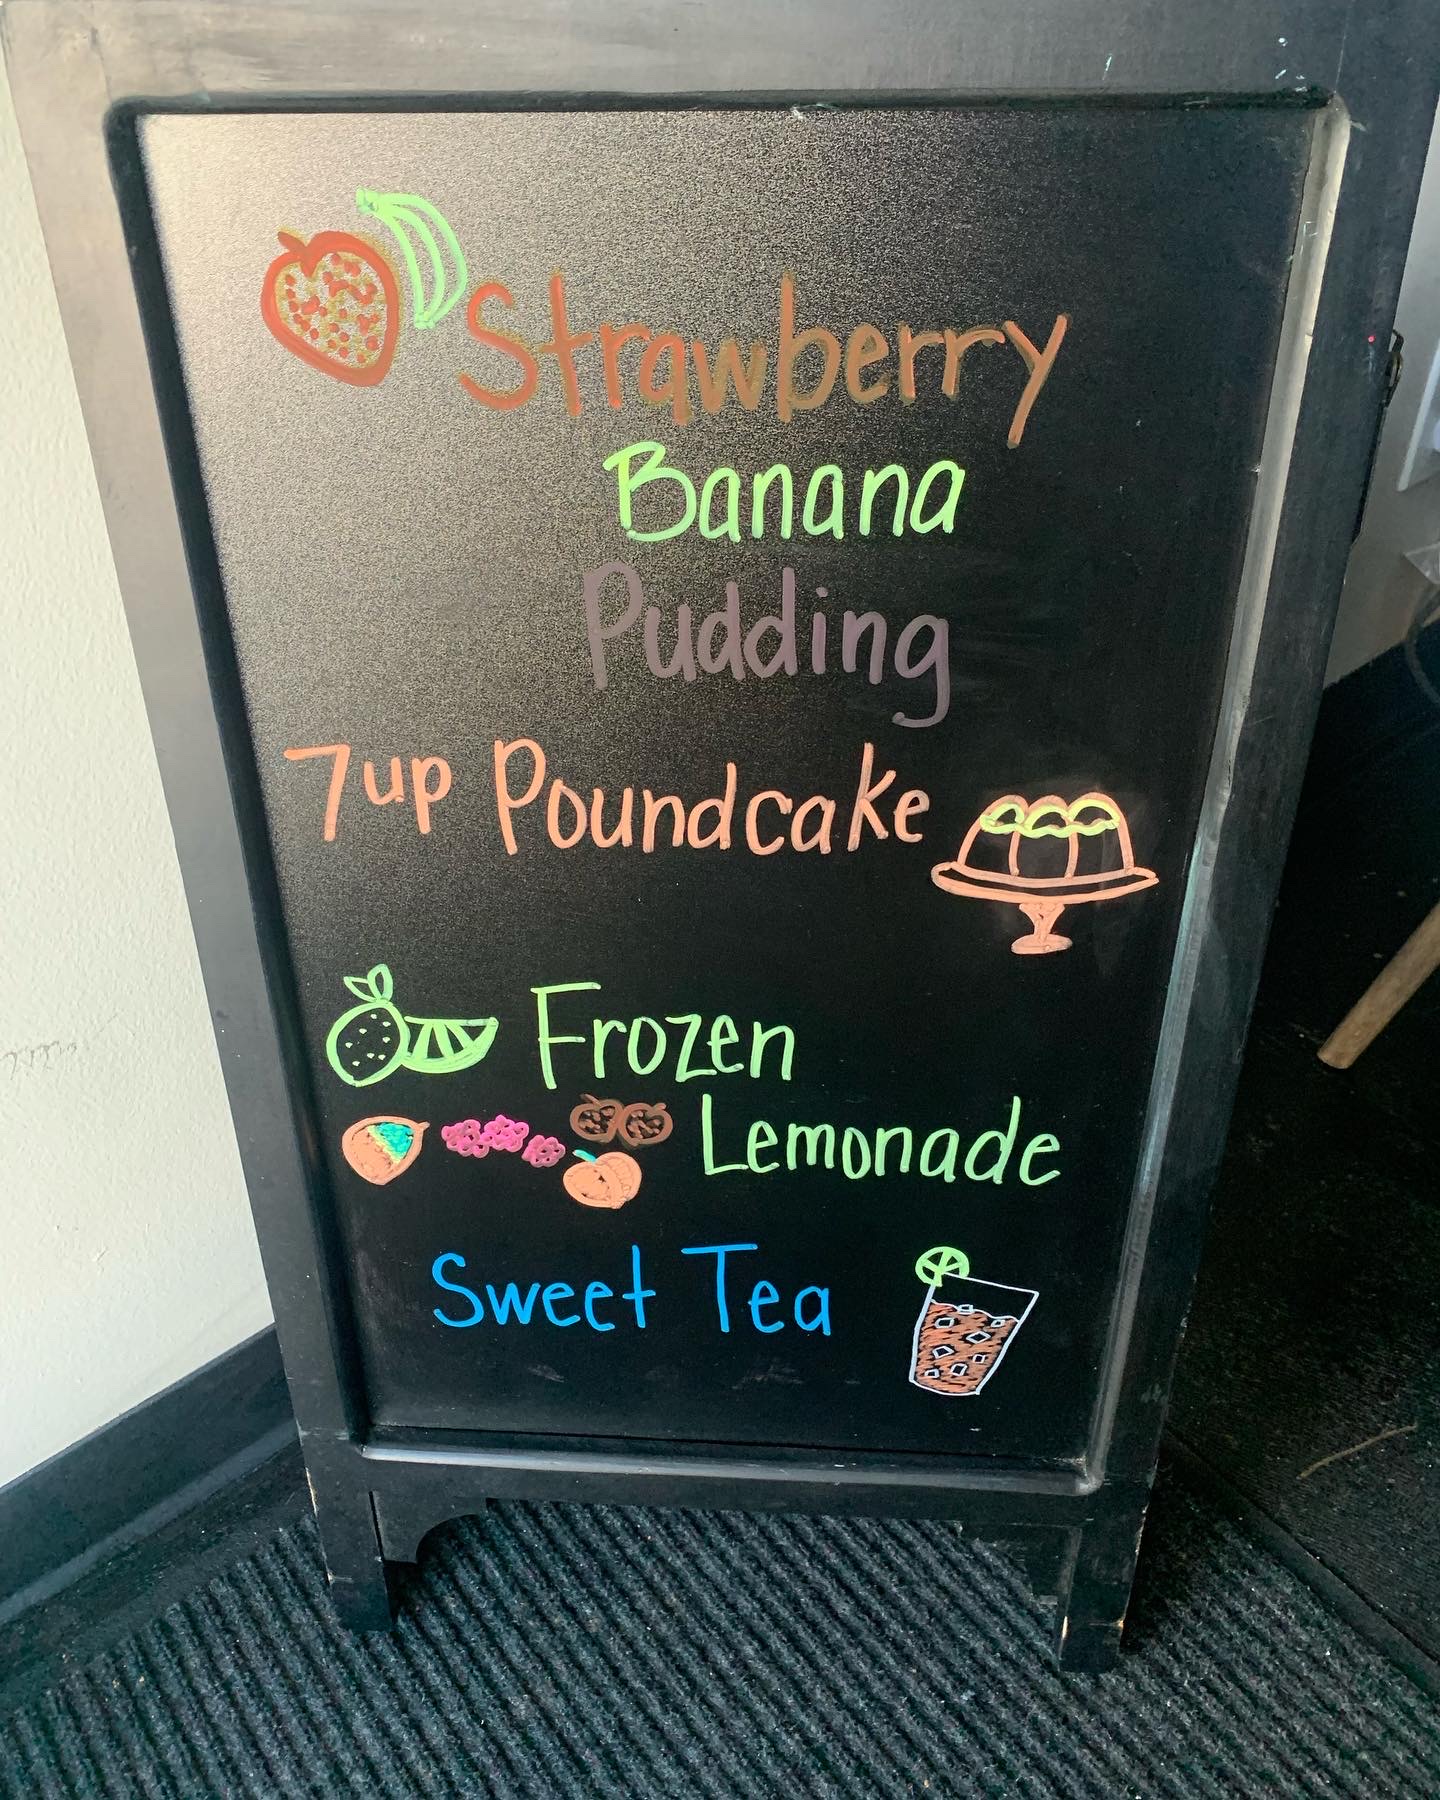 Strawberry
Banana
Pudding
7up Poundcake
Frozen
Lemonade
Sweet Tea